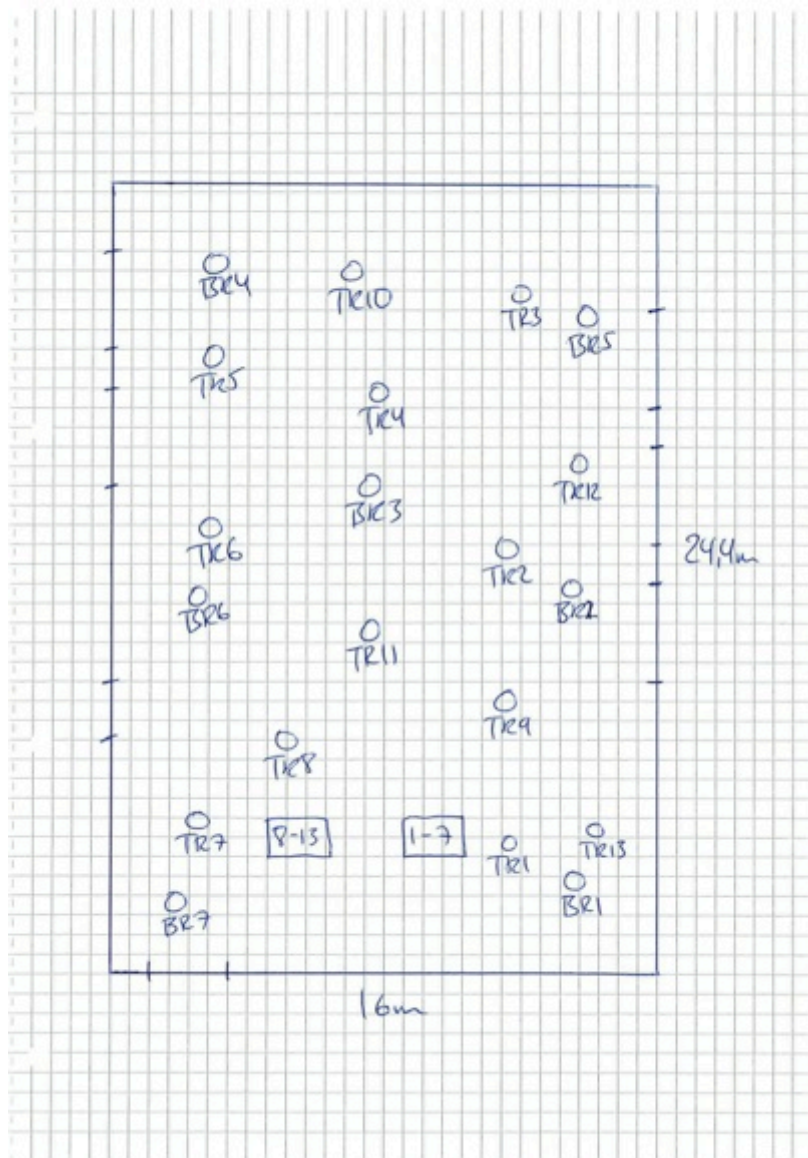 BR4
TR10
TR3
BR5
TR5
TR4
TR12
BR3
TR6
TR2
24,4m
BR6
BR2
TR11
TR9
TR8
TR7
8-13
1-7
TR1
TR13
BR1
BR7
16m